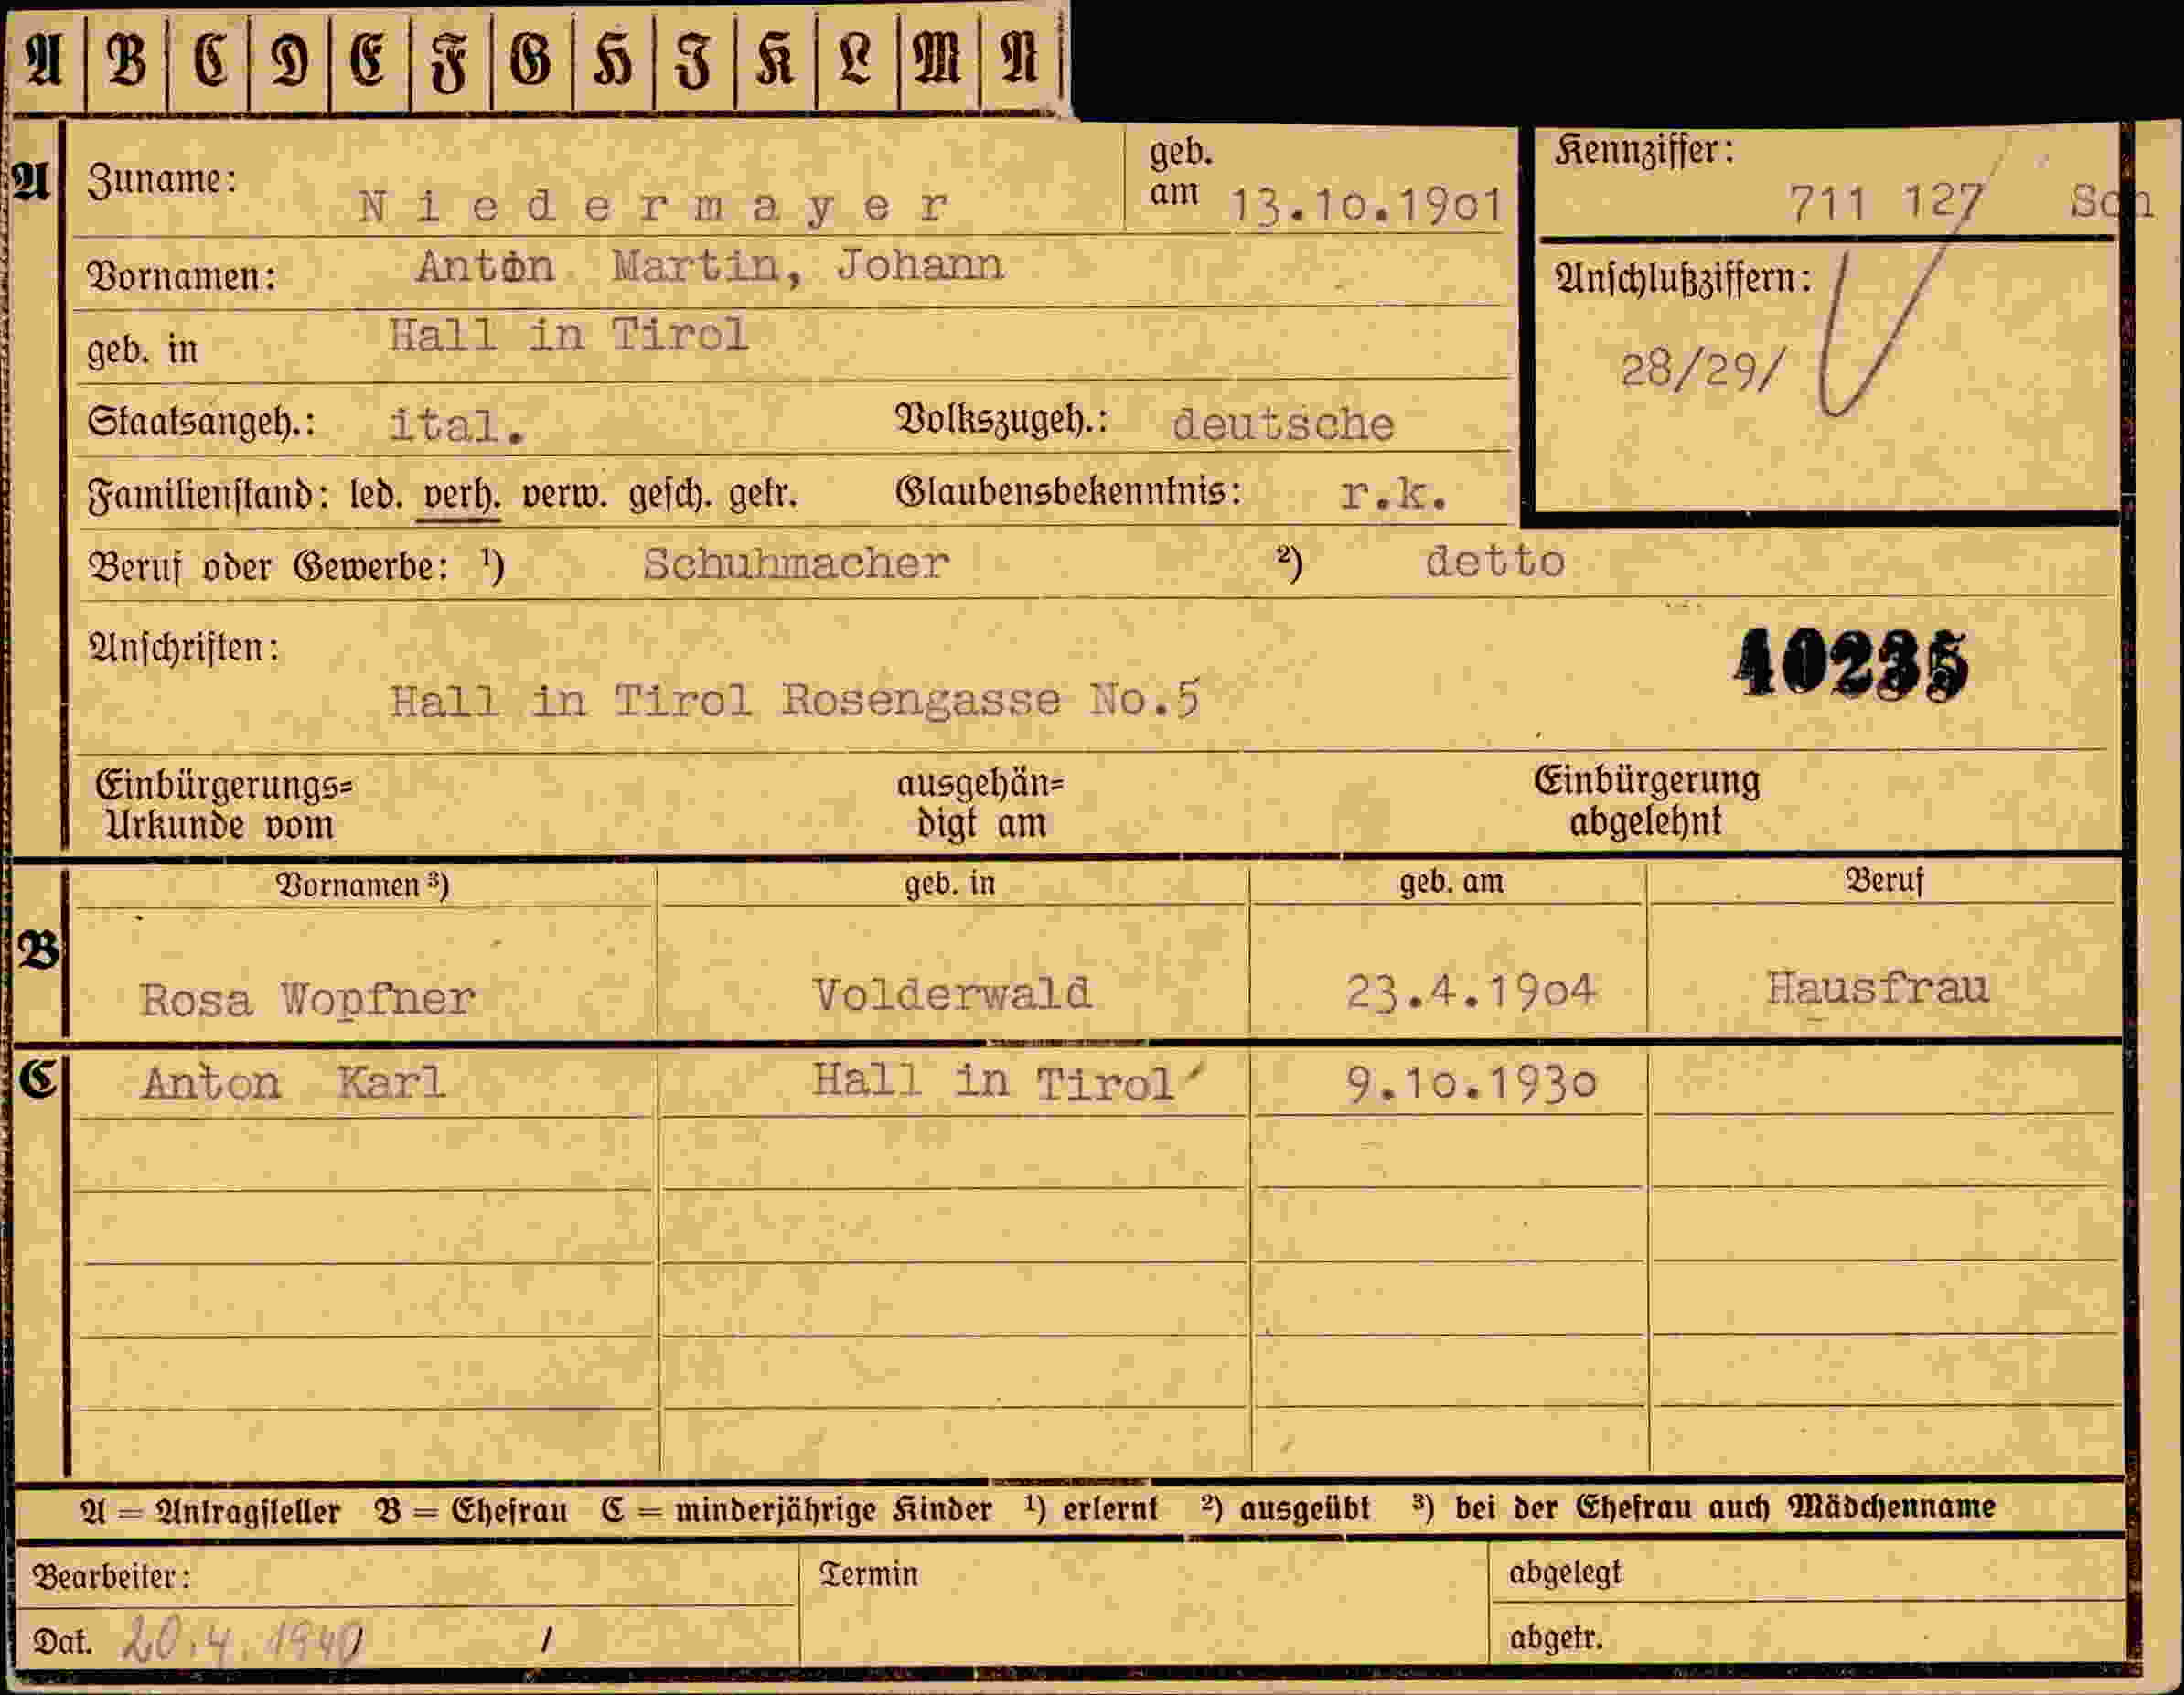 A B C D E F G H I K L M N
A Zuname: Niedermayer geb. am 13.10.1901 Kennziffer: 711 127 Sch
Vornamen: Anton Martin, Johann Anschlußziffern:
geb. in Hall in Tirol 28/29/
Staatsangeh.: ital. Volkszugeh.: deutsche
Familienstand: led. verh. verw. gesch. getr. Glaubensbekenntnis: r.k.
Beruf oder Gewerbe: ¹) Schuhmacher ²) detto
Anschriften: 40235
Hall in Tirol Rosengasse No.5
Einbürgerungs= ausgehän= Einbürgerung
Urkunde vom digt am abgelehnt
Vornamen ³) geb. in geb. am Beruf
B Rosa Wopfner Volderwald 23.4.1904 Hausfrau
C Anton Karl Hall in Tirol 9.10.1930
A = Antragsteller B = Ehefrau C = minderjährige Kinder ¹) erlernt ²) ausgeübt ³) bei der Ehefrau auch Mädchenname
Bearbeiter: Termin abgelegt
Dat. 20.4.1940 / abgetr.